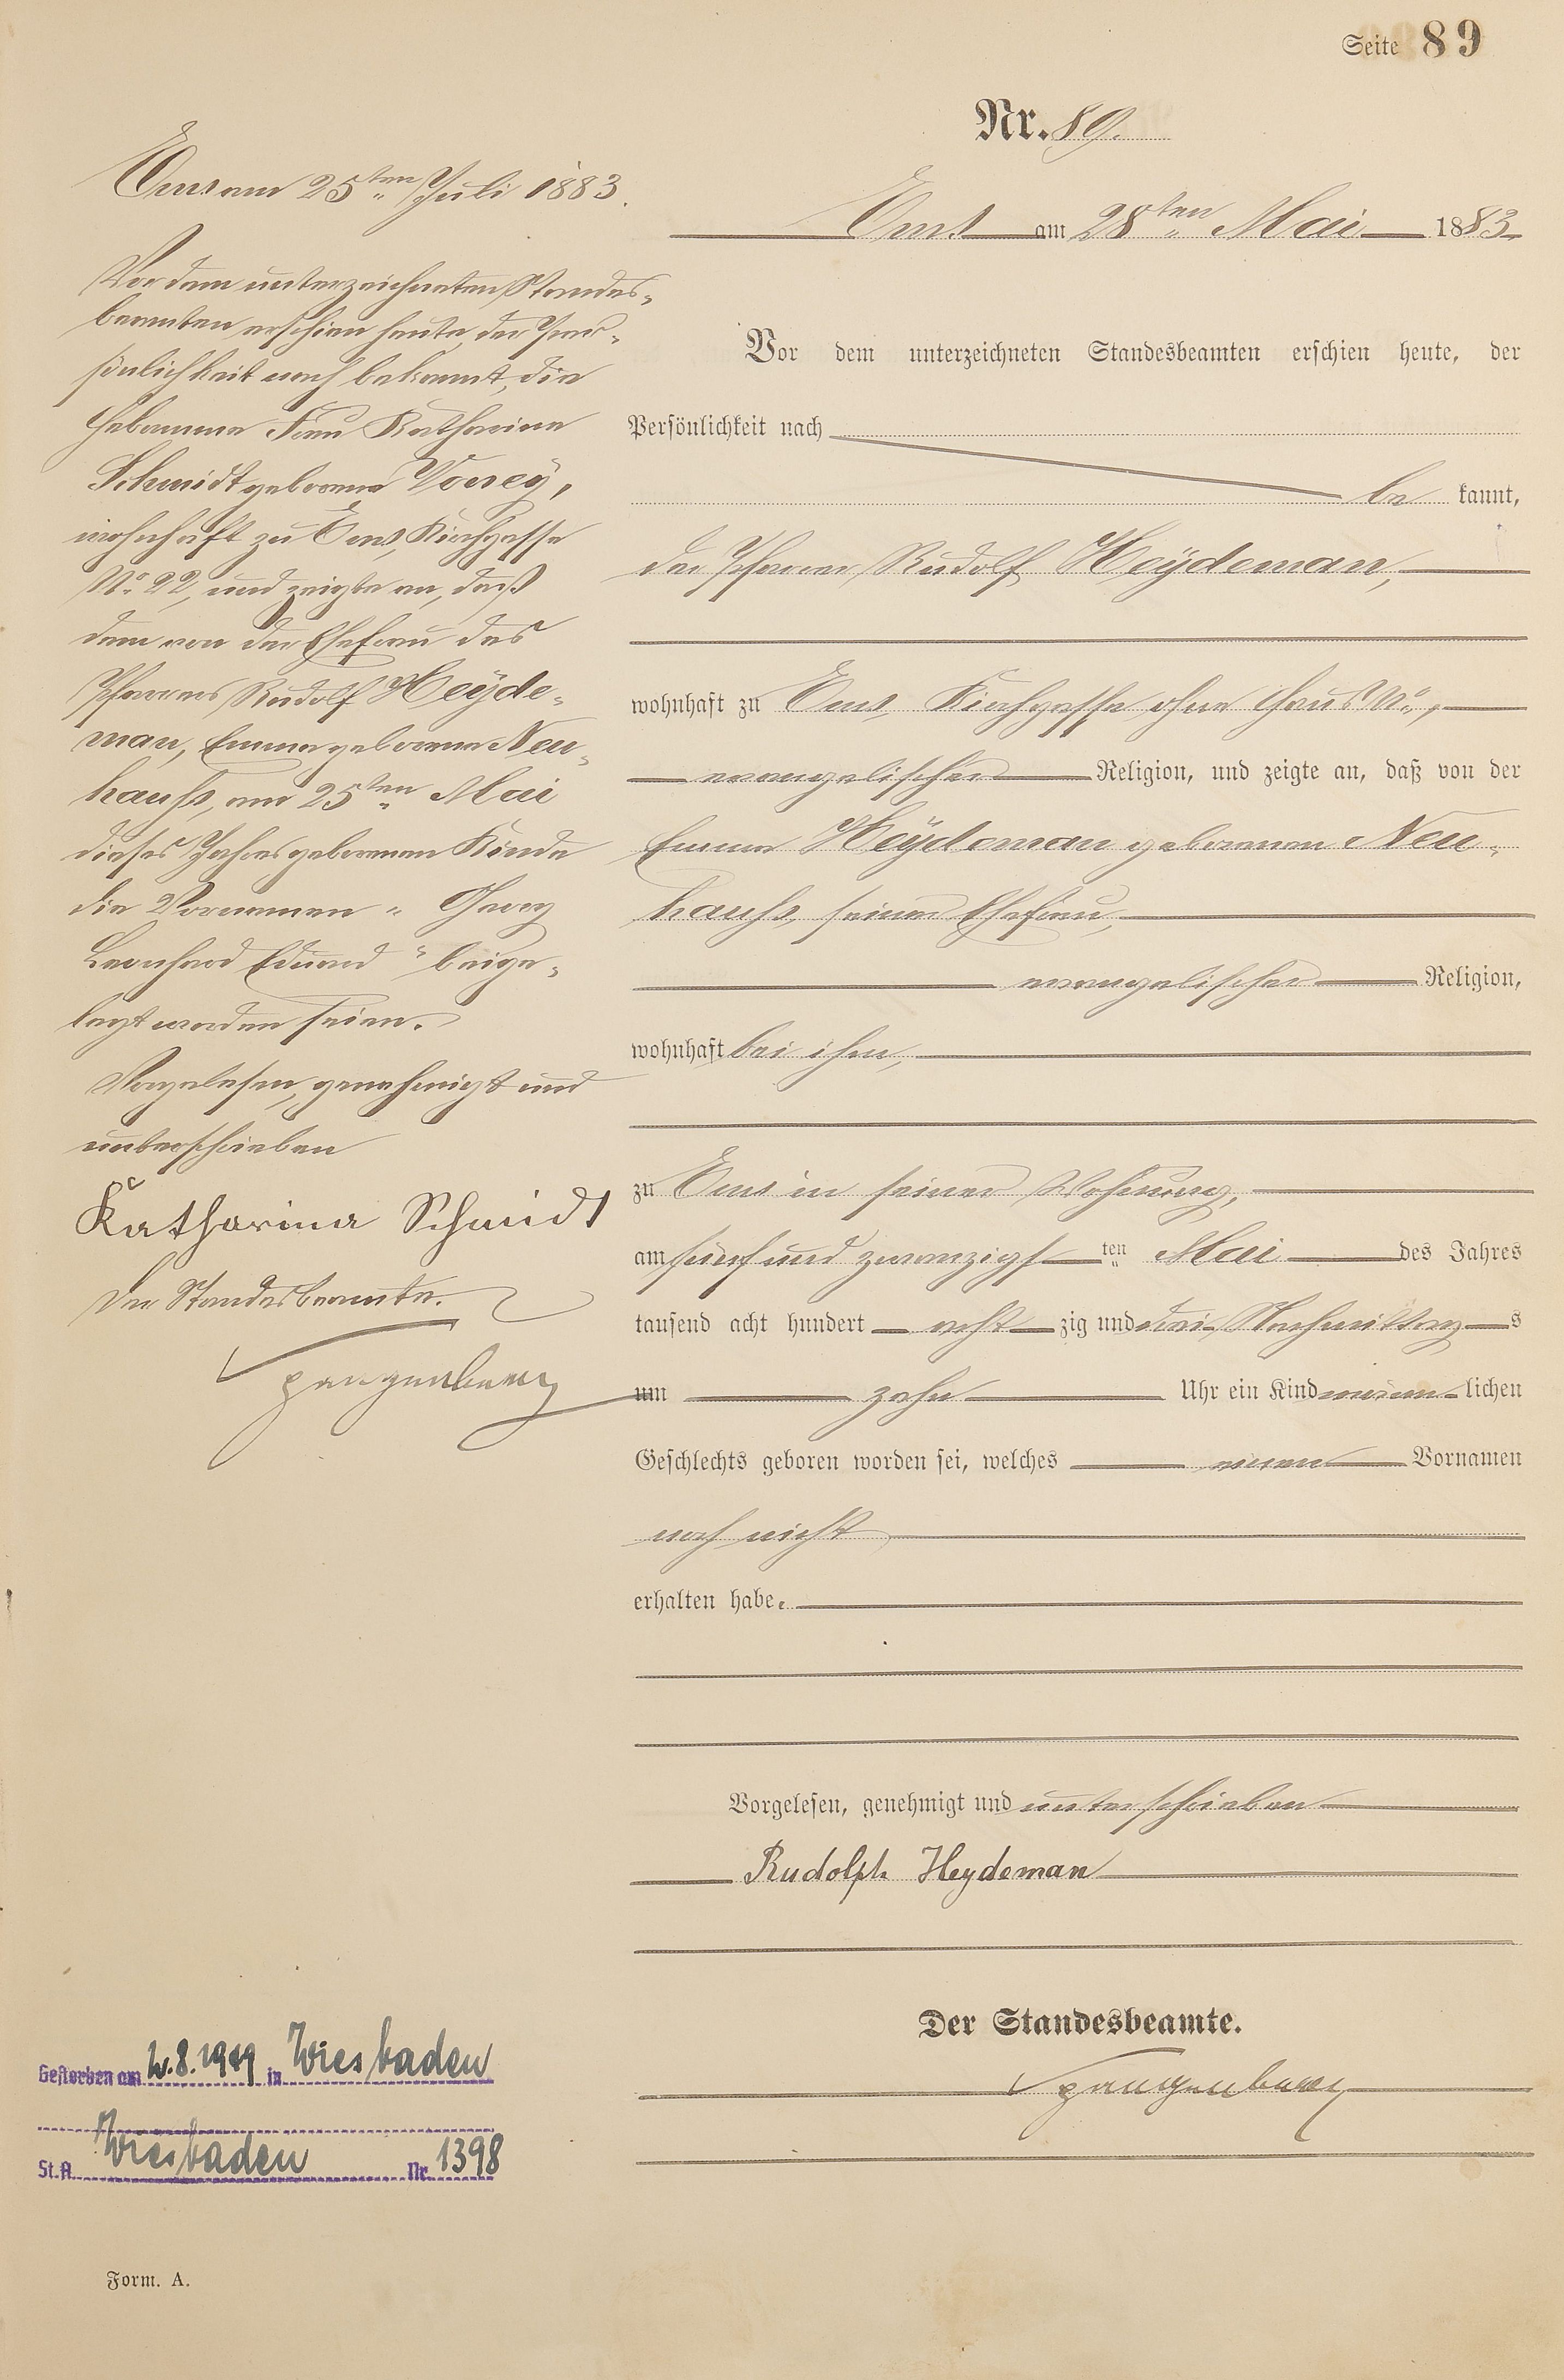 Seite 89
Nr. 89.
Ems am 28ten Mai 1883.
Vor dem unterzeichneten Standesbeamten erschien heute, der
Persönlichkeit nach
be kannt,
der Pfarrer Rudolf Heÿdeman,
wohnhaft zu Ems, Kirchgasse ohne Haus No.,
evangelischer Religion, und zeigte an, daß von der
Emma Heÿdeman geborenen Neu-
hauß, seiner Ehefrau,
evangelischer Religion,
wohnhaft bei ihm,
zu Ems in seiner Wohnung,
am fünf und zwanzigsten Mai des Jahres
tausend acht hundert acht zig und drei Nachmittags
um zehn Uhr ein Kind männlichen
Geschlechts geboren worden sei, welches einen Vornamen
noch nicht
erhalten habe.
Vorgelesen, genehmigt und unterschrieben
Rudolph Heydeman
Der Standesbeamte.
Spangenberg
Ems am 25ten Juli 1883.
Vor dem unterzeichneten Standes-
beamten erschien heute, der Per-
sönlichkeit nach bekannt, die
Hebamme Frau Katharina
Schmidt geborene
wohnhaft zu Ems, Kirchgasse
No. 22, und zeigte an, daß
dem von der Ehefrau des
Pfarrers Rudolf Heÿde-
man, Emma geborene Neu-
hauß, am 25ten Mai
dieses Jahres geborenen Kinde
die Vornamen „Georg
Leonhard Eduard“ beige-
legt worden seien.
Vorgelesen, genehmigt und
unterschrieben
Katharina Schmidt
Der Standesbeamte.
Spangenberg
Gestorben am 2.8.1949 in Wiesbaden
St.A. Wiesbaden Nr. 1398
Form. A.